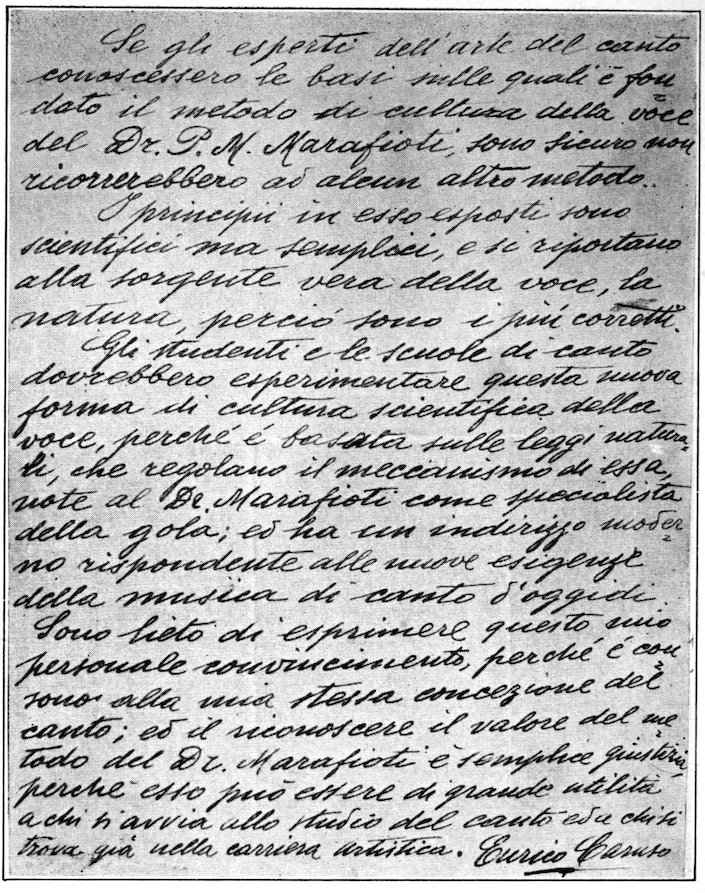 Se gli esperti dell'arte del canto
conoscessero le basi sulle quali è fon=
dato il metodo di cultura della voce
del Dr. P. M. Marafioti, sono sicuro non
ricorrerebbero ad alcun altro metodo.
I principii in esso esposti sono
scientifici ma semplici, e si riportano
alla sorgente vera della voce, la
natura, perció sono i piú corretti.
Gli studenti e le scuole di canto
dovrebbero esperimentare questa nuova
forma di cultura scientifica della
voce, perché é basata sulle leggi natura=
li, che regolano il meccanismo di essa,
note al Dr. Marafioti come specialista
della gola; ed ha un indirizzo moder=
no rispondente alle nuove esigenze
della musica di canto d'oggidi
Sono lieto di esprimere questo mio
personale convincimento, perché é con=
sono alla mia stessa concezione del
canto; ed il riconoscere il valore del me=
todo del Dr. Marafioti é semplice giustizia,
perché esso puó essere di grande utilità
a chi si avvia allo studio del canto ed a chi si
trova già nella carriera artistica. Enrico Caruso